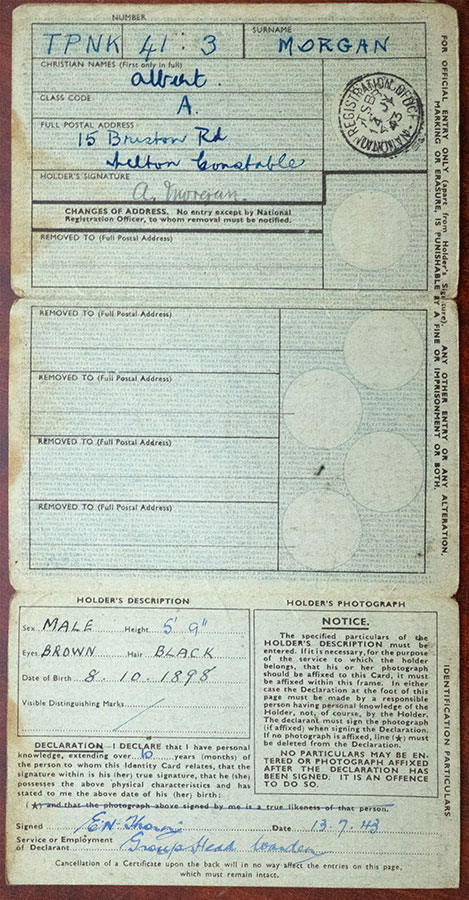 NUMBER
SURNAME
TPNK 41 : 3 MORGAN
CHRISTIAN NAMES (First only in full)
Albert.
CLASS CODE
A.
FULL POSTAL ADDRESS
15 Briston Rd
Melton Constable
HOLDER'S SIGNATURE
A. Morgan.
NATIONAL REGISTRATION OFFICE
CHANGES OF ADDRESS. No entry except by National
Registration Officer, to whom removal must be notified.
REMOVED TO (Full Postal Address)
REMOVED TO (Full Postal Address)
REMOVED TO (Full Postal Address)
REMOVED TO (Full Postal Address)
REMOVED TO (Full Postal Address)
FOR OFFICIAL ENTRY ONLY (apart from Holder's Signature). ANY OTHER ENTRY OR ANY ALTERATION,
MARKING OR ERASURE, IS PUNISHABLE BY A FINE OR IMPRISONMENT OR BOTH.
HOLDER'S DESCRIPTION
Sex MALE Height 5' 9"
Eyes BROWN Hair BLACK
Date of Birth 8. 10. 1898
Visible Distinguishing Marks
DECLARATION I DECLARE that I have personal
knowledge, extending over 10 years (months) of
the person to whom this Identity Card relates, that the
signature within is his (her) true signature, that he (she)
possesses the above physical characteristics and has
stated to me the above date of his (her) birth:
(★) and that the photograph above signed by me is a true likeness of that person.
HOLDER'S PHOTOGRAPH
NOTICE.
The specified particulars of the
HOLDER'S DESCRIPTION must be
entered. If it is necessary, for the purpose
of the service to which the holder
belongs, that his or her photograph
should be affixed to this Card, it must
be affixed within this frame. In either
case the Declaration at the foot of this
page must be made by a responsible
person having personal knowledge of the
Holder, not, of course, by the Holder.
The declarant must sign the photograph
(if affixed) when signing the Declaration.
If no photograph is affixed, line (★) must
be deleted from the Declaration.
NO PARTICULARS MAY BE EN-
TERED OR PHOTOGRAPH AFFIXED
AFTER THE DECLARATION HAS
BEEN SIGNED. IT IS AN OFFENCE
TO DO SO.
IDENTIFICATION PARTICULARS
Signed Date 13.7.43
Service or Employment
of Declarant Group Head Warden
Cancellation of a Certificate upon the back will in no way affect the entries on this page,
which must remain intact.